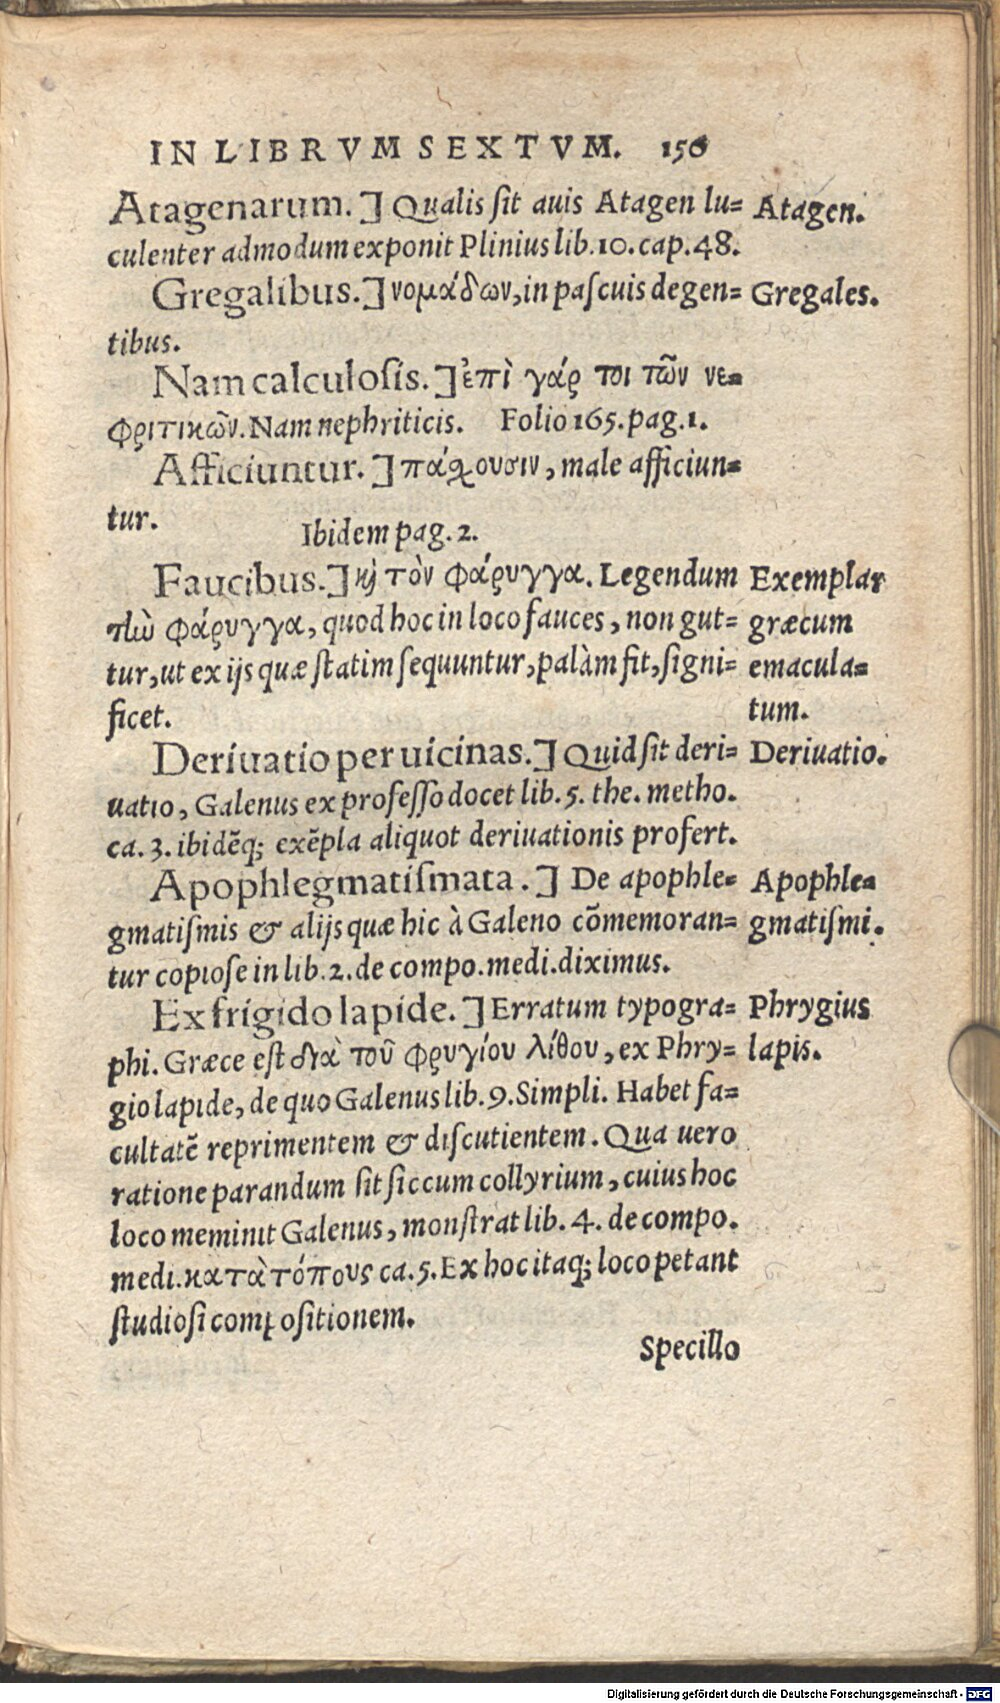 IN LIBRVM SEXTVM. 156
Atagenarum.] Qualis sit auis Atagen lu= Atagen.
culenter admodum exponit Plinius lib.10.cap.48.
Gregalibus.] νομάδων, in pascuis degen= Gregales.
tibus.
Nam calculosis.] ἐπὶ γάρ τοι τῶν νε=
φριτικῶν. Nam nephriticis. Folio 165.pag.1.
Afficiuntur.] πάσχουσιν, male afficiun=
tur.
Ibidem pag.2.
Faucibus.] καὶ τὸν φάρυγγα. Legendum Exemplar
τὴν φάρυγγα, quod hoc in loco fauces, non gut= græcum
tur, ut ex ijs quæ statim sequuntur, palàm fit, signi= emacula=
ficet. tum.
Deriuatio per uicinas.] Quid sit deri= Deriuatio.
uatio, Galenus ex professo docet lib.5. the. metho.
ca.3. ibidēq; exēpla aliquot deriuationis profert.
Apophlegmatismata.] De apophle= Apophle=
gmatismis & alijs quæ hic à Galeno cōmemoran= gmatismi.
tur copiose in lib.2. de compo.medi.diximus.
Ex frigido lapide.] Erratum typogra= Phrygius
phi. Græce est διὰ τοῦ φρυγίου λίθου, ex Phry= lapis.
gio lapide, de quo Galenus lib.9.Simpli. Habet fa=
cultatē reprimentem & discutientem. Qua uero
ratione parandum sit siccum collyrium, cuius hoc
loco meminit Galenus, monstrat lib.4. de compo.
medi. κατὰ τόπους ca.5. Ex hoc itaq; loco petant
studiosi compositionem.
Specillo
Digitalisierung gefördert durch die Deutsche Forschungsgemeinschaft - DFG